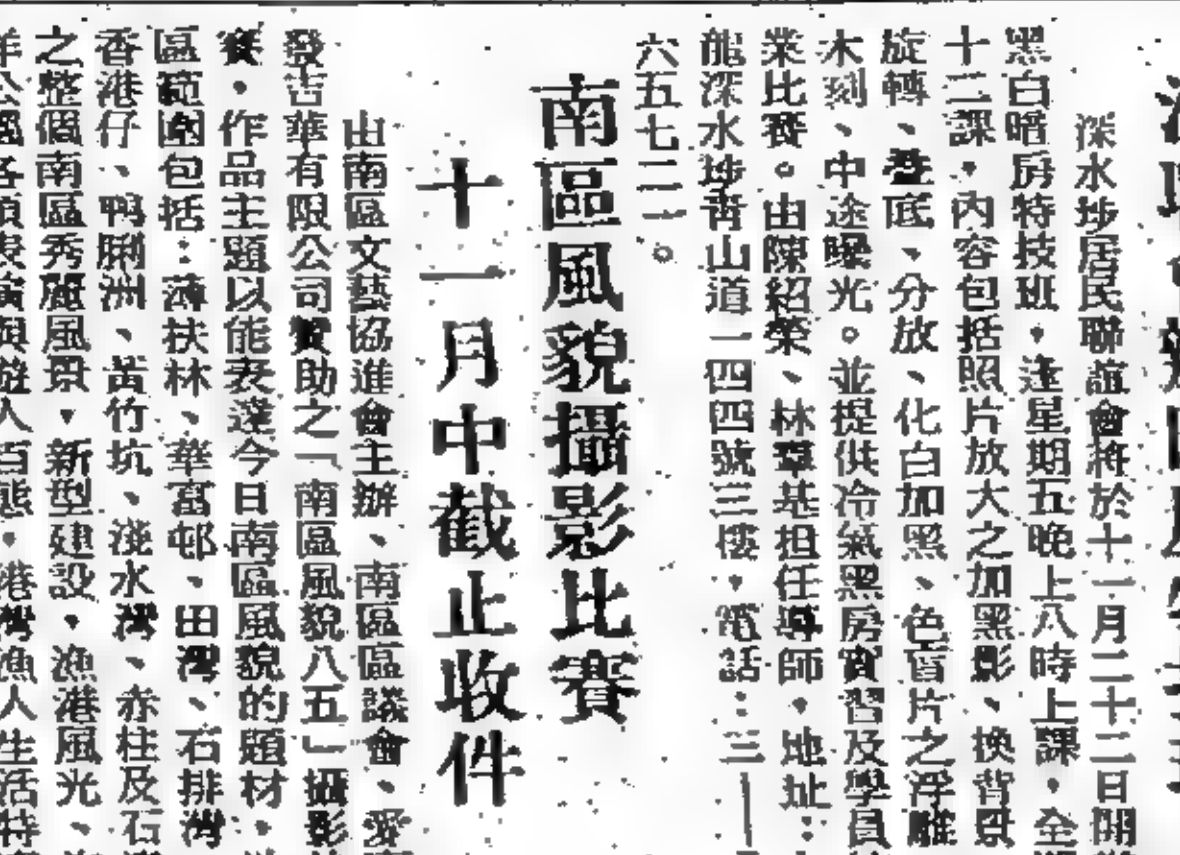 深水埗居民聯誼會將於十一月二十二日開
黑白暗房特技班，逢星期五晚上八時上課，全
十二課，內容包括照片放大之加黑影、換背景
旋轉、疊底、分放、化白加黑、色盲片之浮雕
木刻、中途曝光。並提供冷氣黑房實習及學員
業比賽。由陳紹榮、林草基担任導師，地址：
龍深水埗青山道一四四號三樓，電話：三—
六五七二一。
南區風貌攝影比賽
十一月中截止收件
由南區文藝協進會主辦、南區區議會、愛
發吉華有限公司贊助之「南區風貌八五」攝影
賽，作品主題以能表達今日南區風貌的題材，
區範圍包括：薄扶林、華富邨、田灣、石排灣
香港仔、鴨脷洲、黃竹坑、淺水灣、赤柱及石
之整個南區秀麗風景，新型建設，漁港風光、
洋公園各項表演與遊人百態，港灣漁人生活特